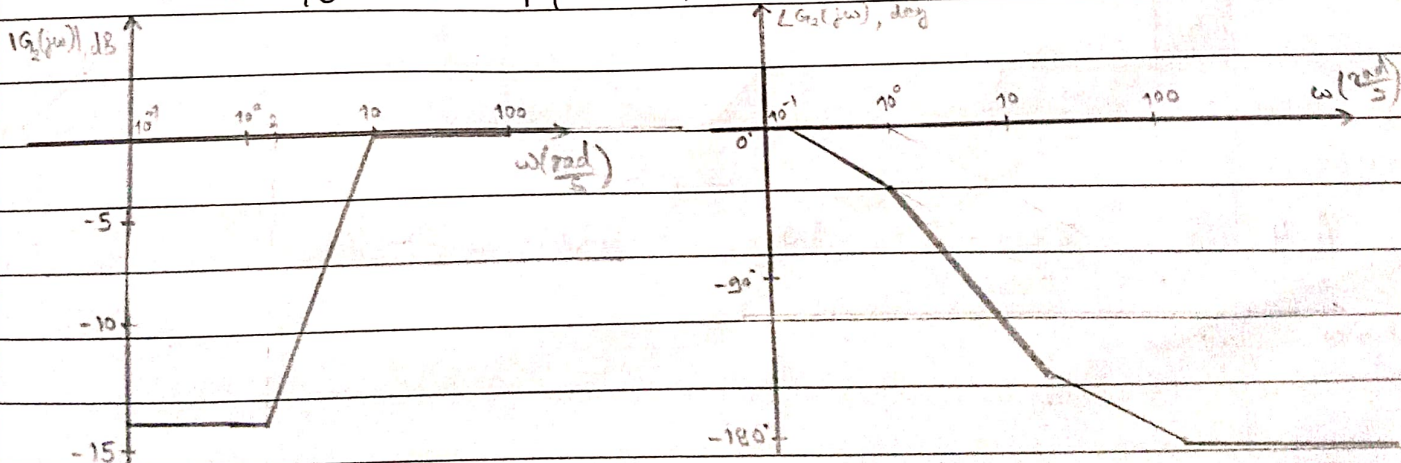 |G₂(jω)|, dB
10⁻¹ 10⁰ 2 10 100
ω(rad/s)
-5
-10
-15
∠G₂(jω), deg
10⁻¹ 10⁰ 10 100
ω(rad/s)
0°
-90°
-180°